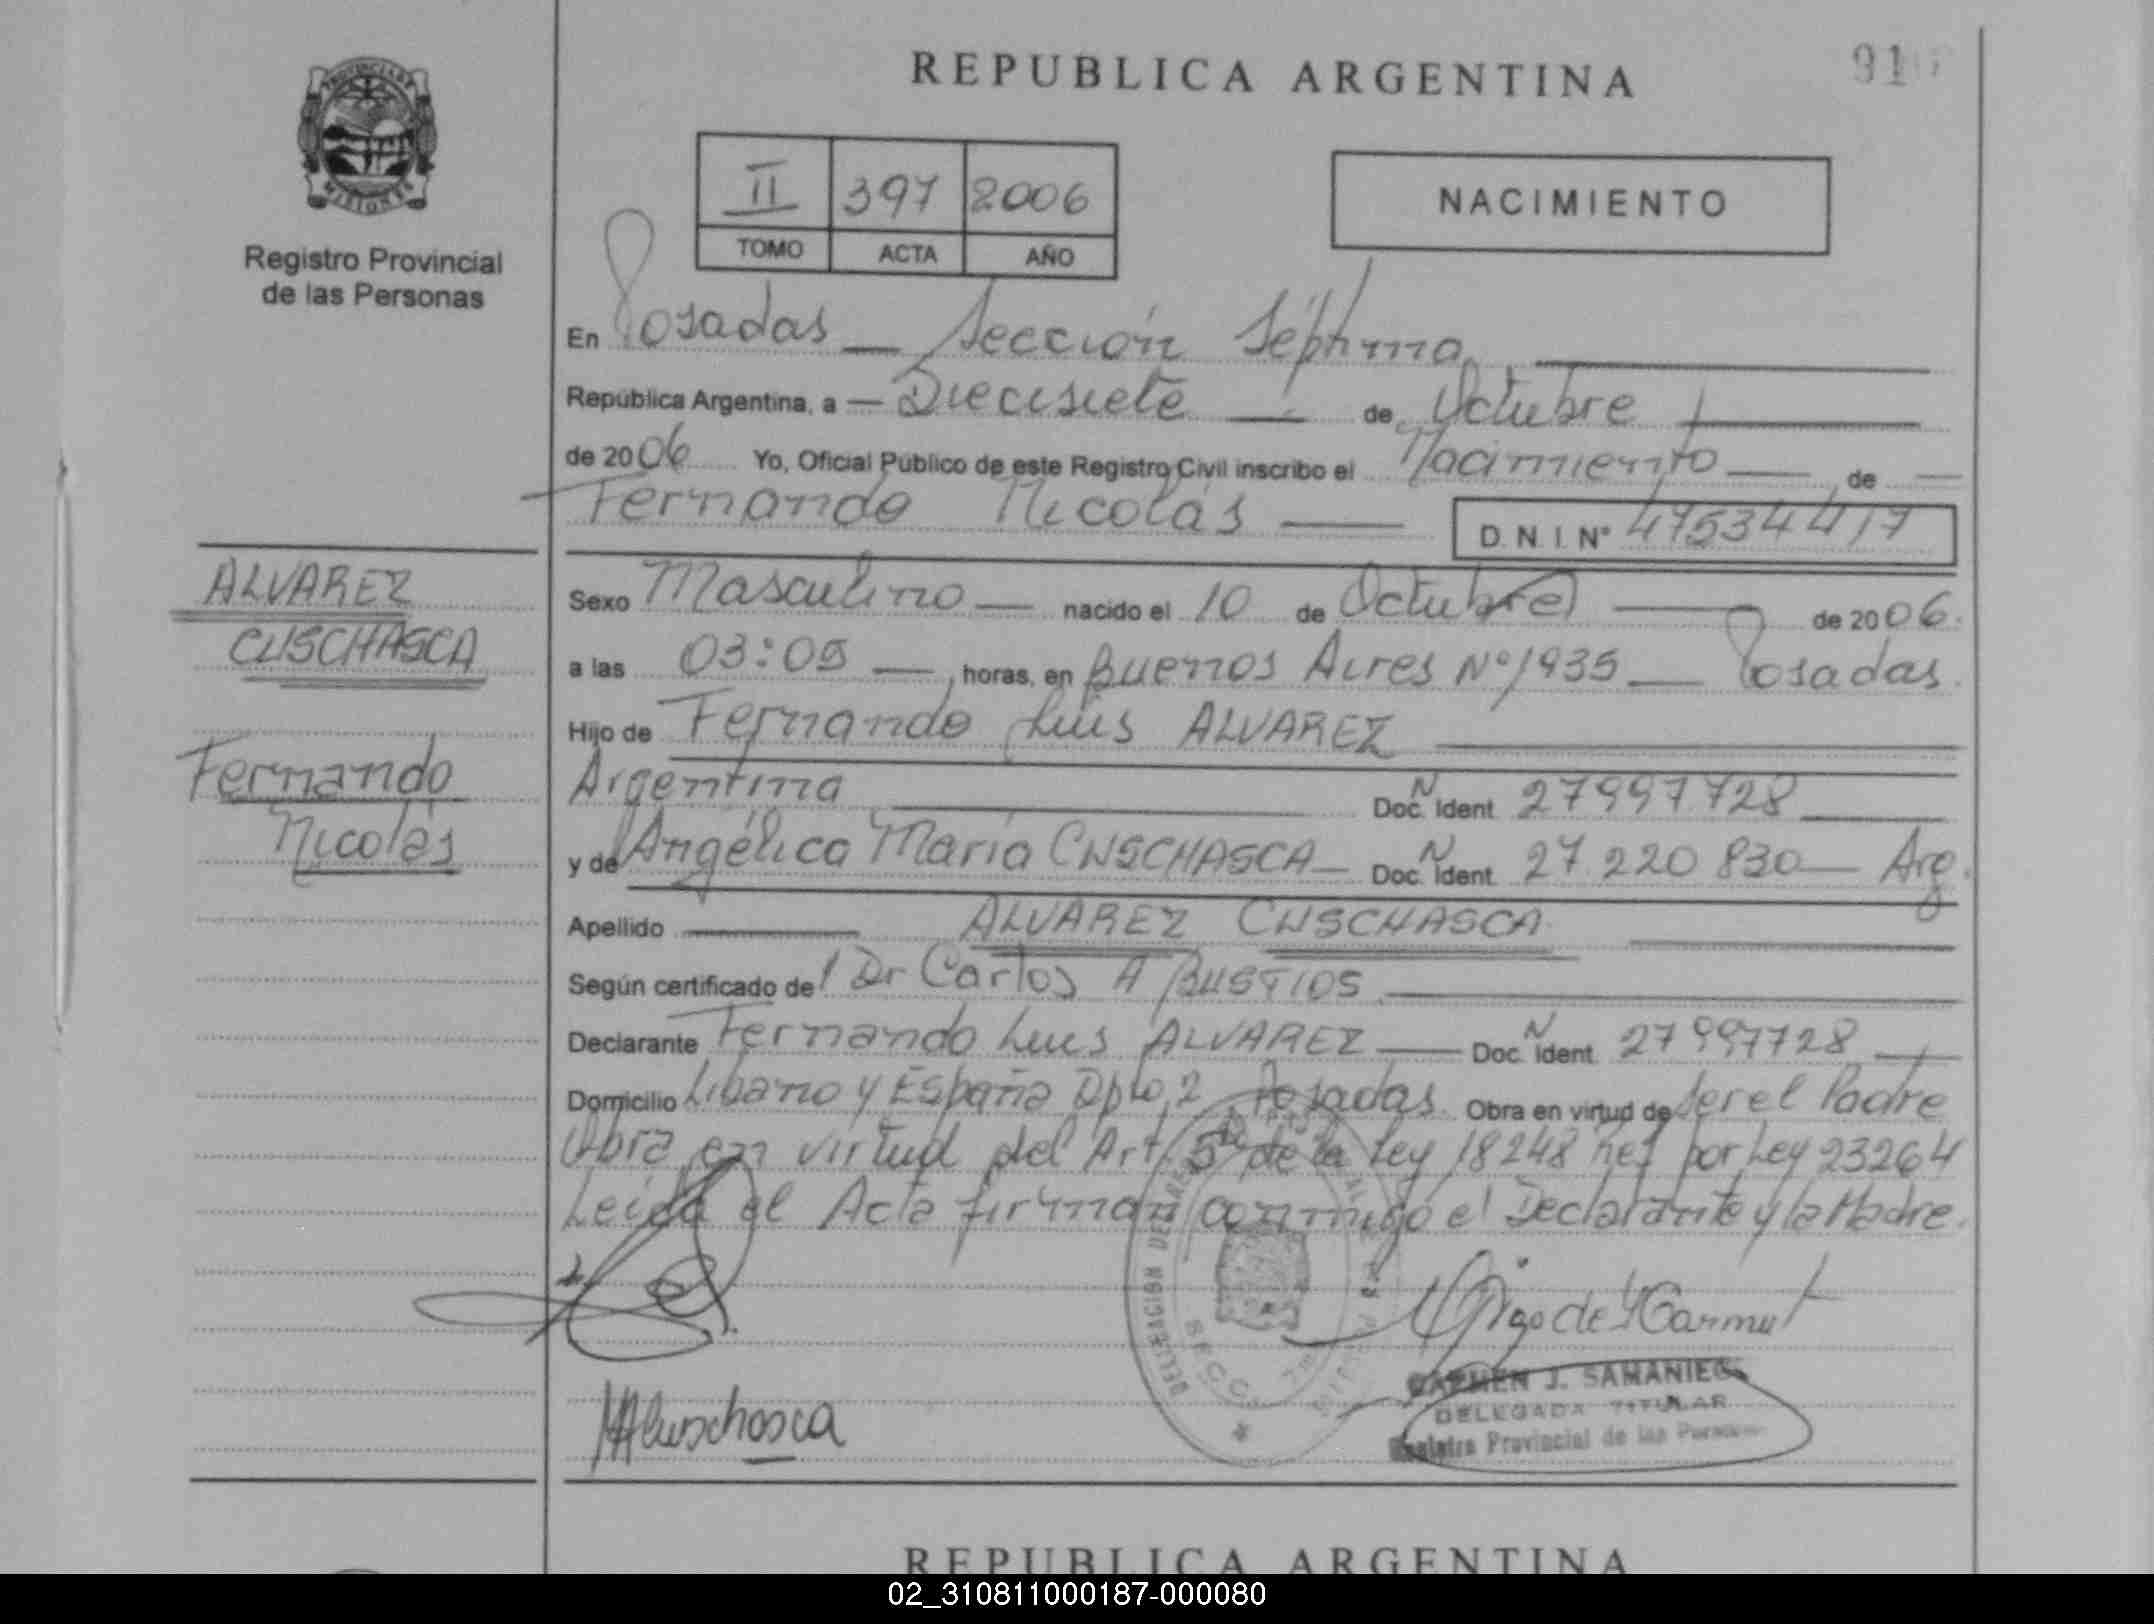 REPUBLICA ARGENTINA
91
PROVINCIA DE
MISIONES
Registro Provincial
de las Personas
II 397 2006
TOMO ACTA AÑO
NACIMIENTO
En Posadas — Sección Séptima
República Argentina, a — Diecisiete — de Octubre
de 2006 Yo, Oficial Público de este Registro Civil inscribo el Nacimiento — de —
Fernando Nicolás — D.N.I. Nº 47534417
ALVAREZ
CUSCHASCA
Fernando
Nicolás
Sexo Masculino — nacido el 10 de Octubre — de 2006.
a las 03:05 — horas, en Buenos Aires Nº 1935 — Posadas.
Hijo de Fernando Luis ALVAREZ
Argentina — Doc. N Ident 27997728
y de Angélica María CUSCHASCA — Doc. N Ident. 27.220 830 — Arg.
Apellido — ALVAREZ CUSCHASCA
Según certificado de Dr Carlos A BUSTIOS
Declarante Fernando Luis ALVAREZ — Doc. N Ident. 27997728
Domicilio Libano y España Dpto 2 Posadas. Obra en virtud de ser el Padre
Obra en virtud del Art. 5 de la Ley 18248 Ref por Ley 23264
Leída el Acta firman conmigo el Declarante y la Madre.
DELEGACION
SECC. 7
CARMEN J. SAMANIEGO
DELEGADA TITULAR
Registro Provincial de las Personas
REPUBLICA ARGENTINA
02_310811000187-000080